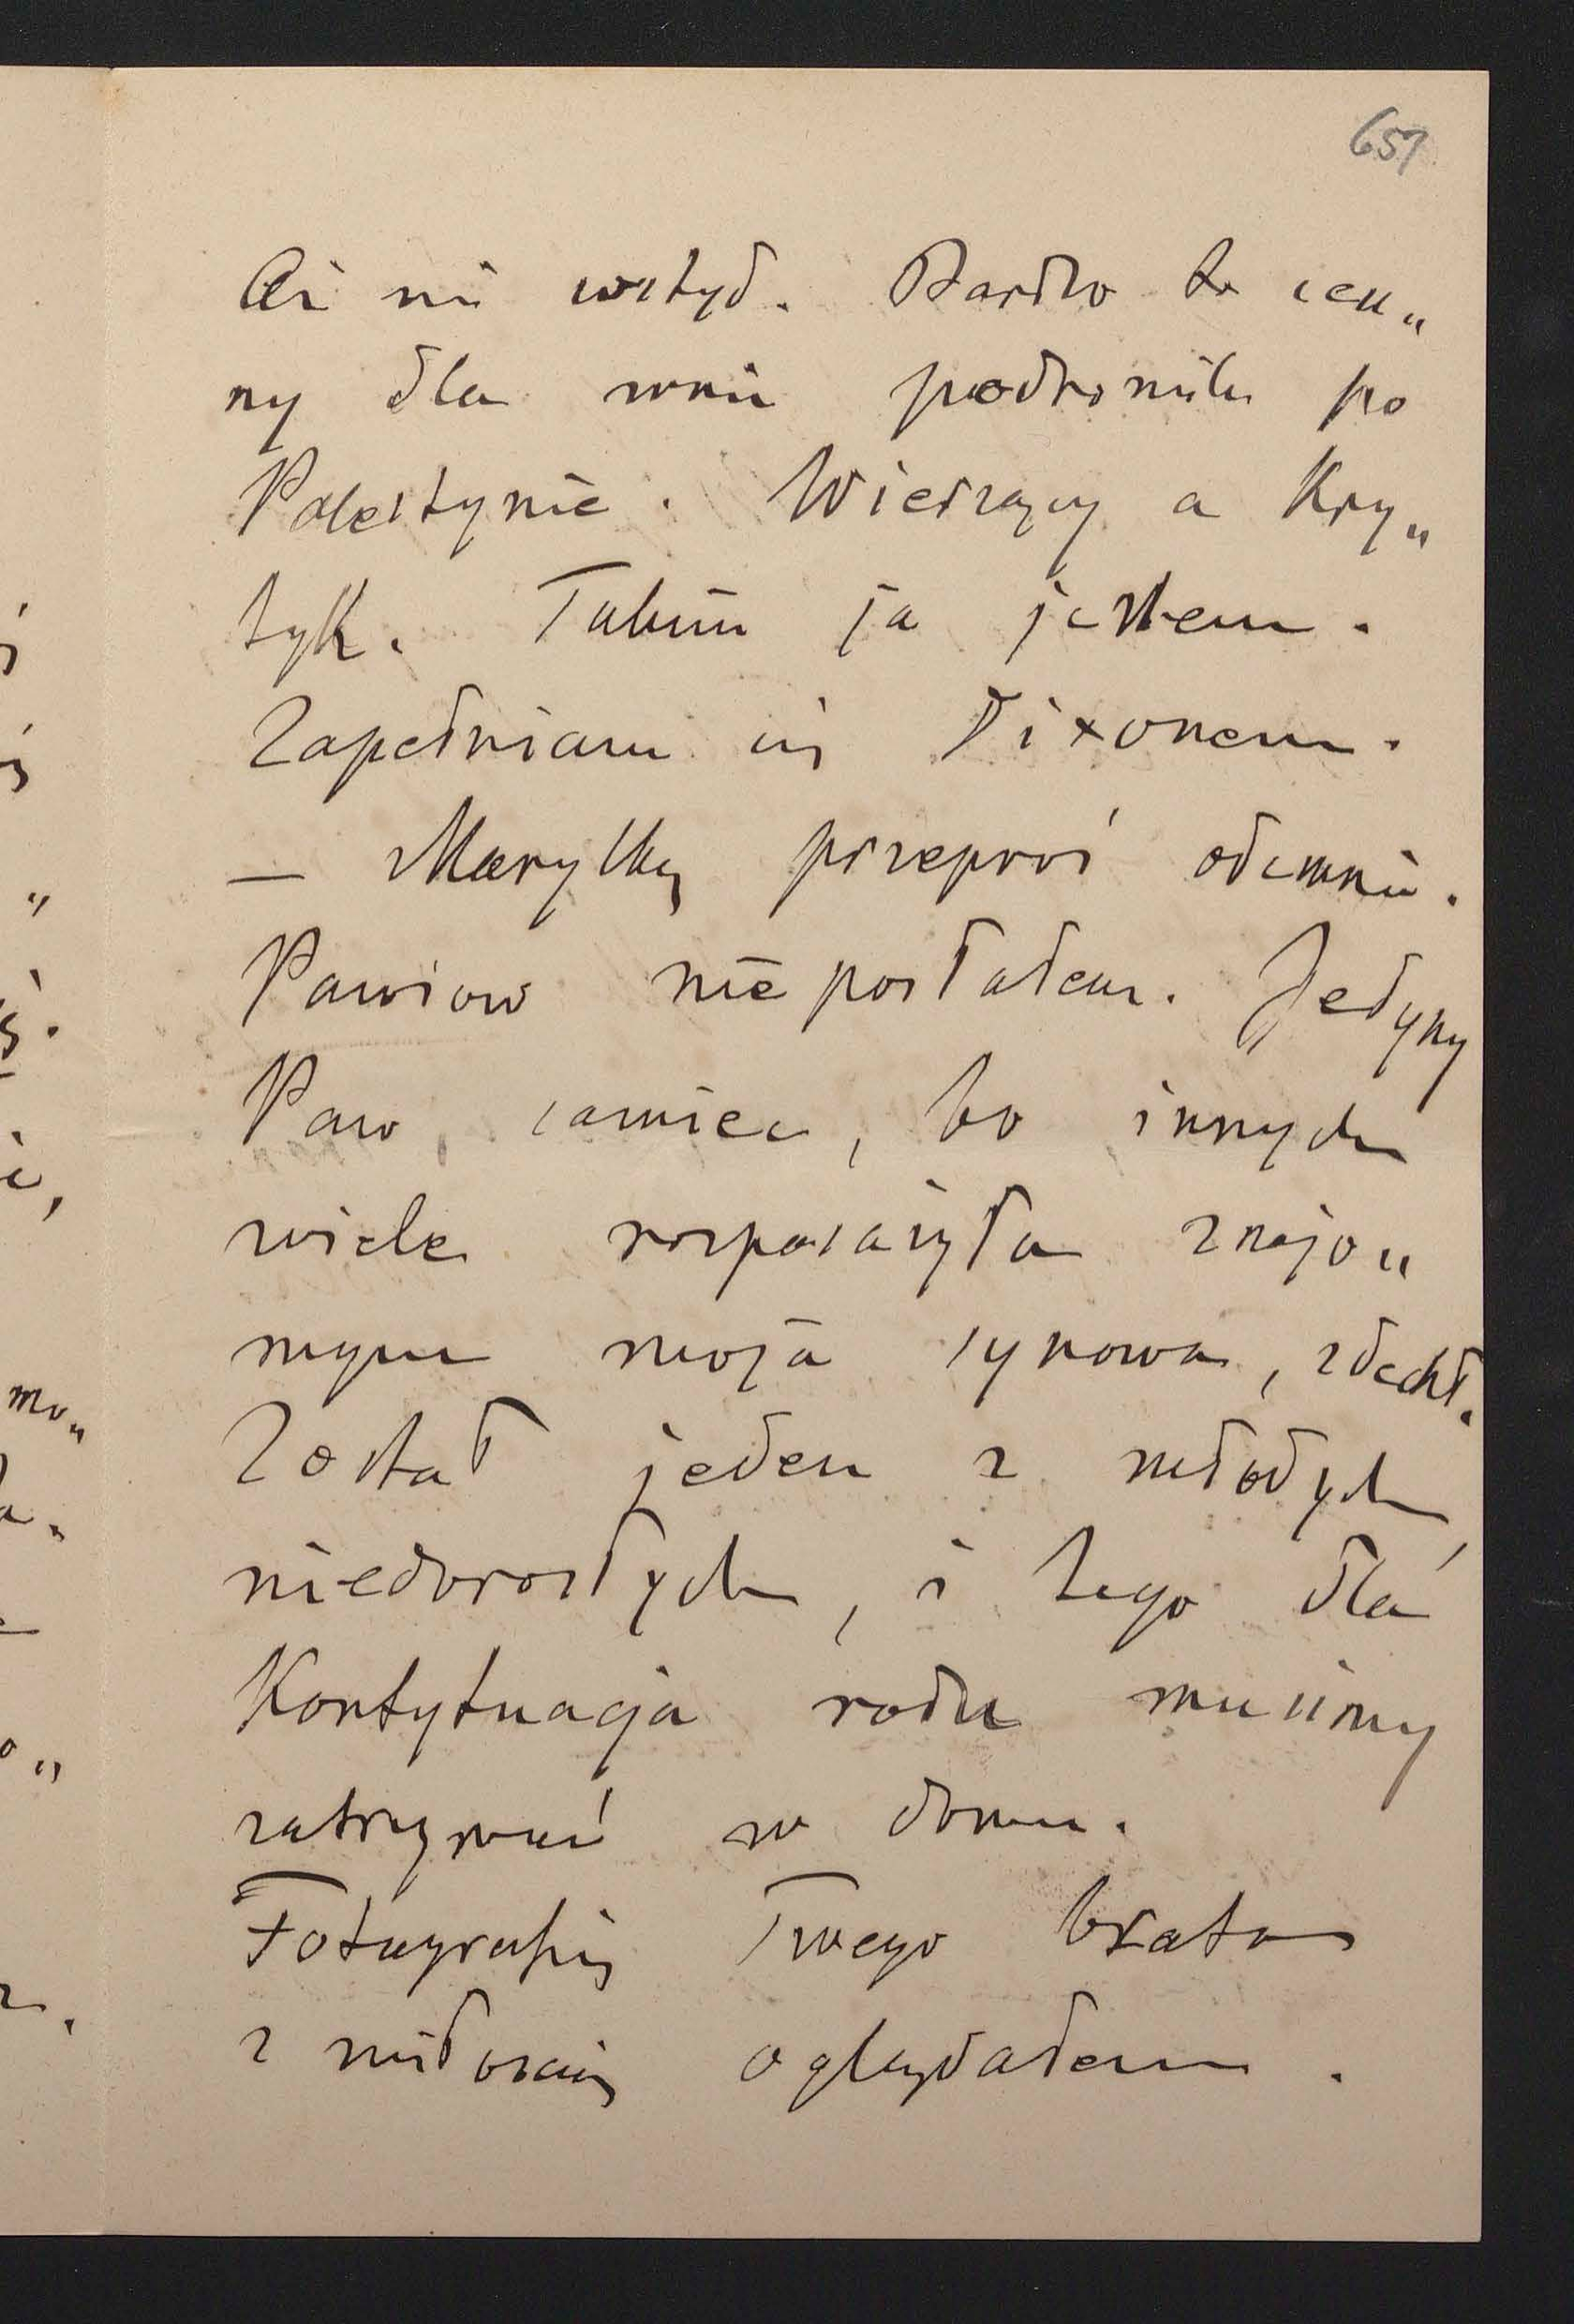 657
Ci nie wstyd. Bardzo to cen„
ny dla mnie podróżnik po
Palestynie. Wierzący a kry„
tyk. Takim ja jestem.
Zapełniam się Dixonem.
— Marylkę przeproś odemnie.
Pawiow nie posłałem. Jedyny
Paw samiec, bo innych
wiele rozposażyła znajo„
mym moja synowa, zdechł.
Został jeden z młodych,
niedorosłych, i tego dla
Kontytuacja rodu musimy
zatrzymać w domu.
Fotografię Twego brata
z miłością oglądałem.
mo„